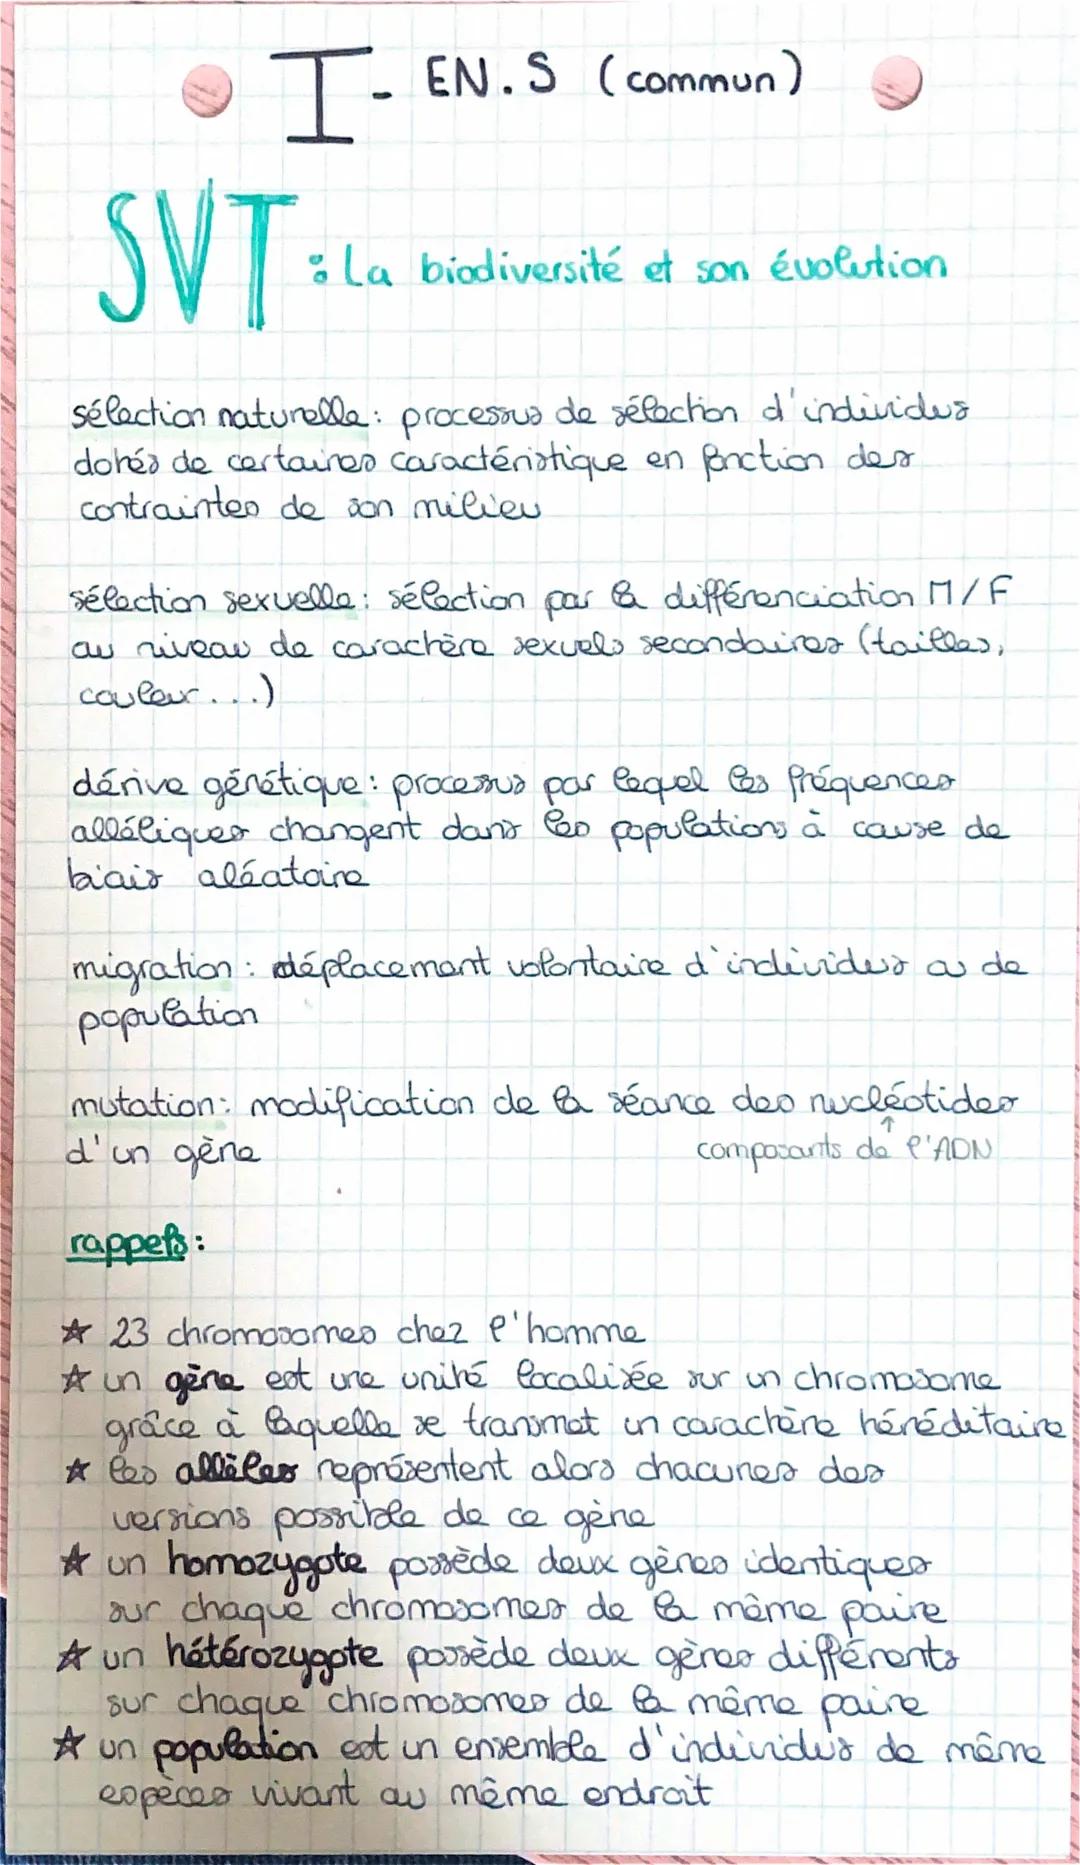 I - EN.S (commun)
SVT : La biodiversité et son évolution
sélection naturelle : processus de sélection d'individus
dotés de certaines caractéristique en fonction des
contraintes de son milieu
sélection sexuelle : sélection par la différenciation M/F
au niveau de caractère sexuels secondaires (tailles,
couleur...)
dérive génétique : processus par lequel les fréquences
alléliques changent dans les populations à cause de
biais aléatoire
migration : déplacement volontaire d'individus ou de
population
mutation : modification de la séance des nucléotides
d'un gène
↑
composants de l'ADN
rappels :
☆ 23 chromosomes chez l'homme
☆ un gène est une unité localisée sur un chromosome
grâce à laquelle se transmet un caractère héréditaire
☆ les allèles représentent alors chacunes des
versions possible de ce gène
☆ un homozygote possède deux gènes identiques
sur chaque chromosomes de la même paire
☆ un hétérozygote possède deux gènes différents
sur chaque chromosomes de la même paire
☆ un population est un ensemble d'individus de même
espèces vivant au même endroit